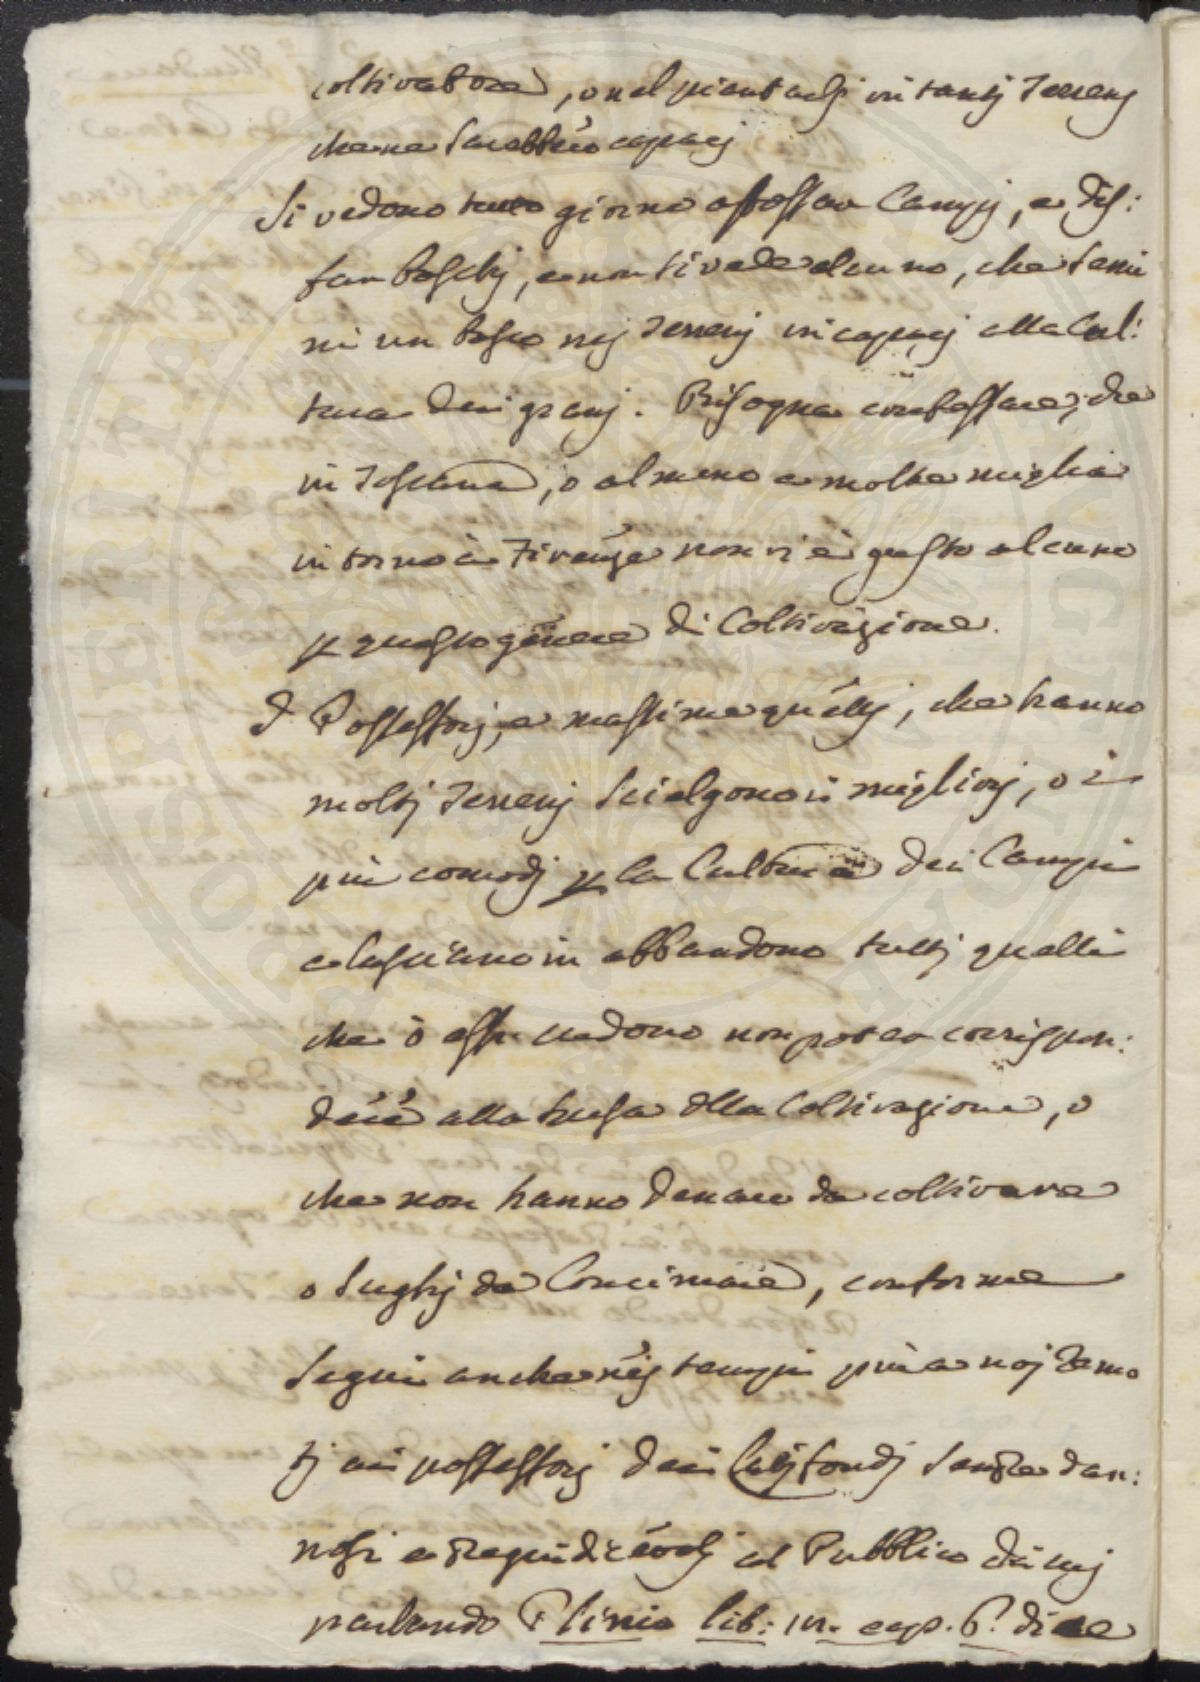 coltivatore, o nel piantarlj in tantj Terrenj
che ne sarebbero capacj
Si vedono tutto giorno affossar Campj, e dis:
far boschj, e non si vede alcuno, che semi
ni un bosco nej Terrenj incapacj alla Cul:
tura dei granj. Bisogna confessare, che
in Toscana, o almeno a molte miglia
intorno à Firenze non vi è gusto alcuno
p questo genere di Coltivazione.
I Possessorj, e massime quellj, che hanno
moltj Terrenj scielgono i migliorj, o i
più comodj p la Cultura dei Campi
e lasciano in abbandono tuttj quelli
che ò essi vedono non poter corrispon:
dere alla spesa dlla Coltivazione, o
che non hanno denare da coltivare
o sughj da Concimare, conforme
seguì anche nej tempi più a noj remo
tj ai possessorj dei fondj sempre dan:
nosi e pregiudicevolj al Pubblico di cuj
parlando Plinio lib: cap. 6. dice